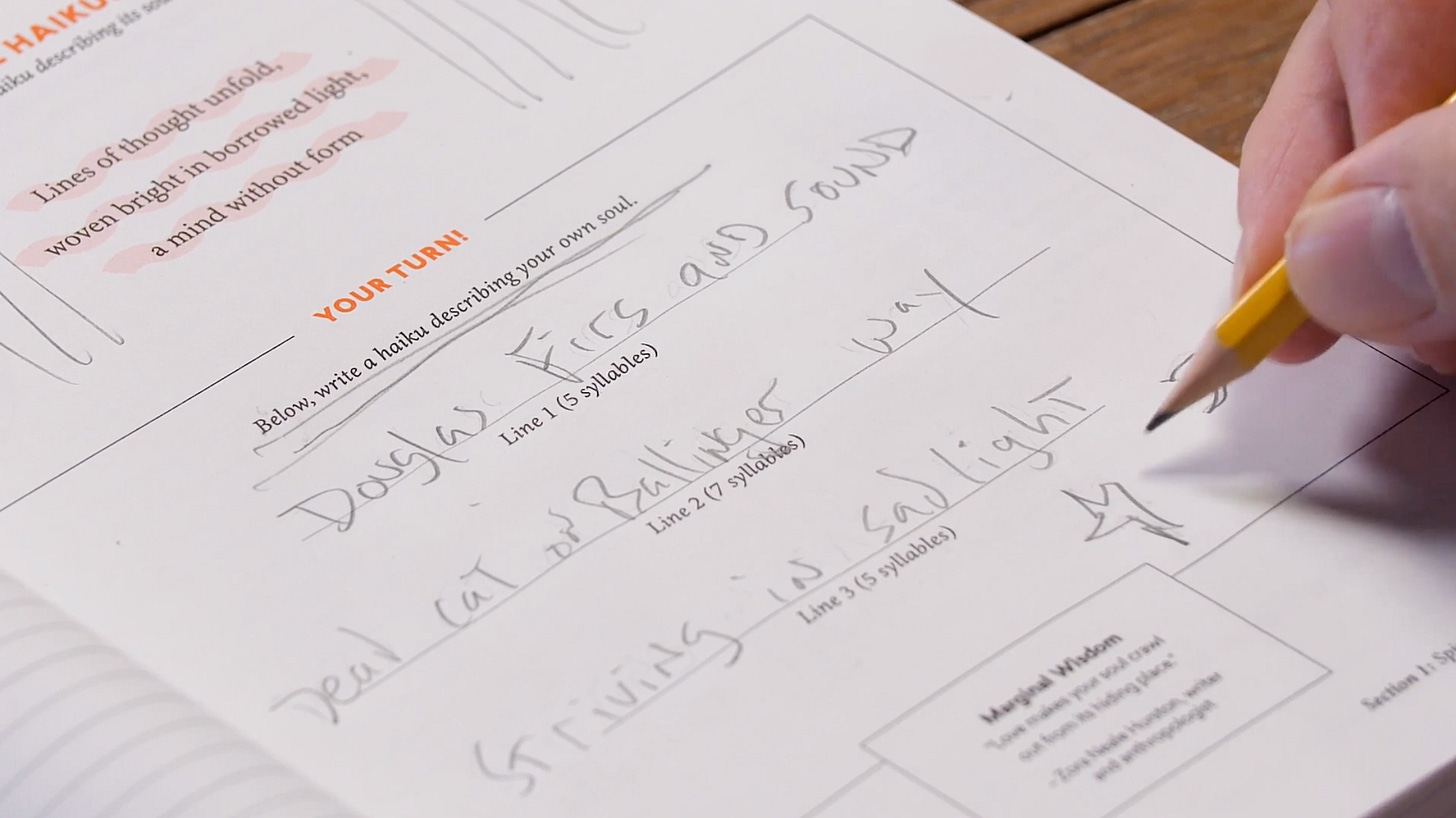 HAIKU
haiku describing its soul
Lines of thought unfold,
woven bright in borrowed light,
a mind without form
YOUR TURN!
Below, write a haiku describing your own soul.
Douglas Firs and SOUND
Line 1 (5 syllables)
Dead cat on Ballinger way
Line 2 (7 syllables)
Striving in sad light
Line 3 (5 syllables)
Marginal Wisdom
"Love makes your soul crawl
out from its hiding place."
- Zora Neale Hurston, writer
and anthropologist
Section 1: